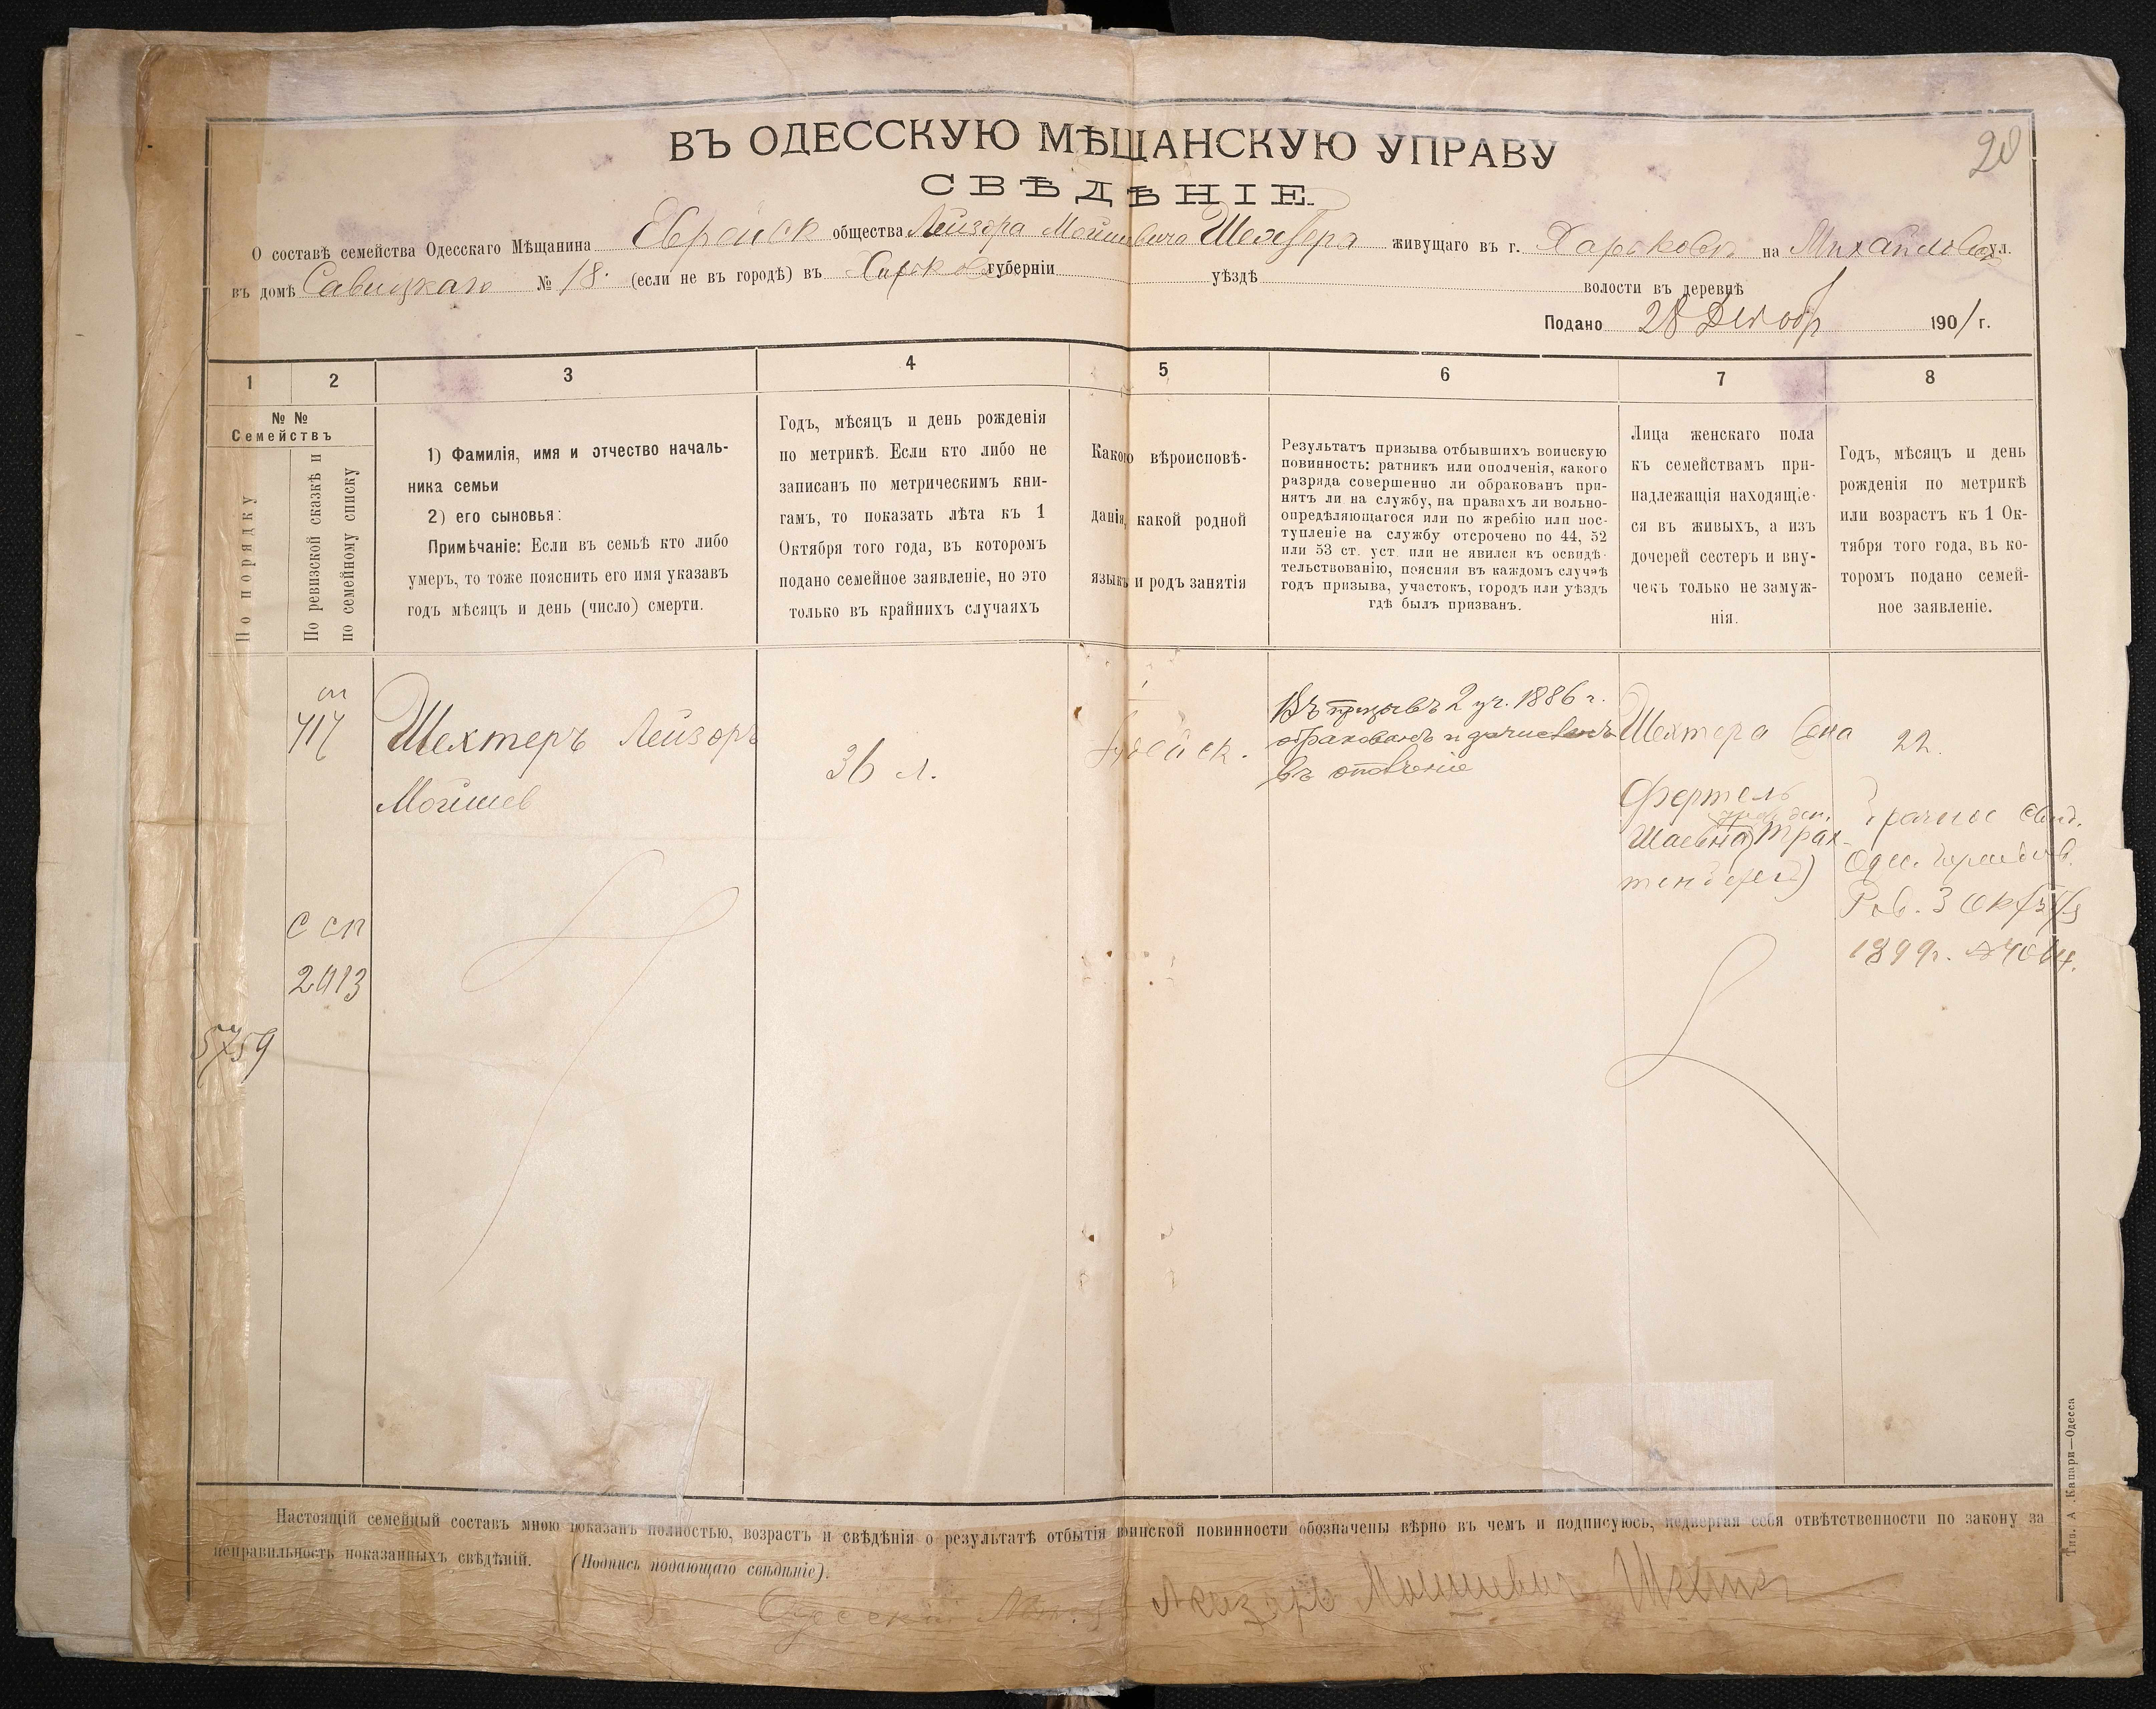 20
ВЪ ОДЕССКУЮ МѢЩАНСКУЮ УПРАВУ
СВѢДѢНІЕ
О составѣ семейства Одесскаго Мѣщанина Еврейск общества Лейзора Мойшевича Шехтера живущаго въ г. Харьковѣ на Михайловск ул.
въ домѣ Савицкаго № 18. (если не въ городѣ) въ Харьков губерніи уѣздѣ волости въ деревнѣ
Подано 28 Декабр 1901 г.
1 2 3 4 5 6 7 8
№ № Семействъ
По порядку
По ревизской сказкѣ и
по семейному списку
1) Фамилія, имя и отчество началь-
ника семьи
2) его сыновья:
Примѣчаніе: Если въ семьѣ кто либо
умеръ, то тоже пояснить его имя указавъ
годъ мѣсяцъ и день (число) смерти.
Годъ, мѣсяцъ и день рожденія
по метрикѣ. Если кто либо не
записанъ по метрическимъ кни-
гамъ, то показать лѣта къ 1
Октября того года, въ которомъ
подано семейное заявленіе, но это
только въ крайнихъ случаяхъ
Какого вѣроисповѣ-
данія, какой родной
языкъ и родъ занятія
Результатъ призыва отбывшихъ воинскую
повинность: ратникъ или ополченія, какого
разряда совершенно ли обракованъ при-
нятъ ли на службу, на правахъ ли вольно-
опредѣляющагося или по жребію или пос-
тупленіе на службу отсрочено по 44, 52
или 53 ст. уст. или не явился къ освидѣ-
тельствованію, поясняя въ каждомъ случаѣ
годъ призыва, участокъ, городъ или уѣздъ
гдѣ былъ призванъ.
Лица женскаго пола
къ семействамъ при-
надлежащія находящіе-
ся въ живыхъ, а изъ
дочерей сестеръ и вну-
чекъ только не замуж-
нія.
Годъ, мѣсяцъ и день
рожденія по метрикѣ
или возрастъ къ 1 Ок-
тября того года, въ ко-
торомъ подано семей-
ное заявленіе.
717
Шехтеръ Лейзоръ
Мойшев
36 л.
Іудейск.
Въ призывъ 2 уч. 1886 г.
обракованъ и зачисленъ
въ ополченіе
Шехтера жена
Фертель
Шаевна Трах-
тенберг)
22.
Брачное свид.
Одес.
Рав. 3 Окт
1899 г.
С сп
2413
5759
Настоящій семейный составъ мною показанъ полностью, возрастъ и свѣдѣнія о результатѣ отбытія воинской повинности обозначены вѣрно въ чемъ и подписуюсь, подвергая себя отвѣтственности по закону за
неправильность показанныхъ свѣдѣній. (Подпись подающаго свѣдѣніе).
Одесскій Лейзеръ Мошкевич Шехтер
Тип. А. Капари—Одесса